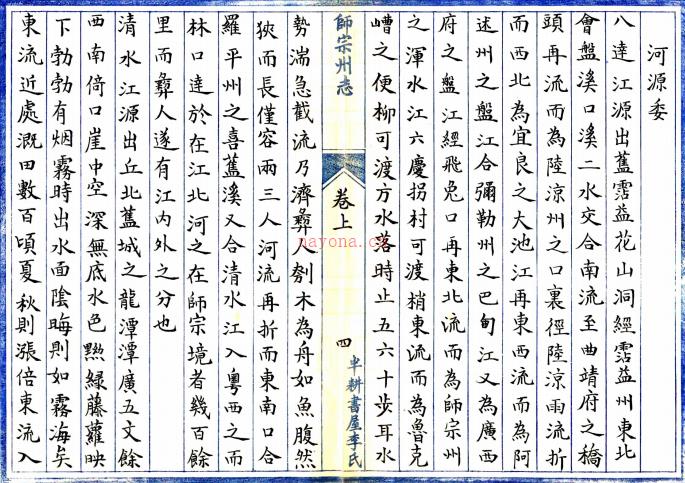 河源委
八達江源出舊霑益花山洞經霑益州東北
會盤溪口溪二水交合南流至曲靖府之橋
頭再流而為陸涼州之口裏徑陸涼雨流折
而西北為宜良之大池江再東西流而為阿
迷州之盤江合彌勒州之巴甸江又為廣西
府之盤江經飛兔口再東北流而為師宗州
之渾水江六慶拐村可渡梢東流而為魯克
嶆之便柳可渡方水落時止五六十步耳水
師宗州志
卷上
四
半耕書屋李氏
nayona.cn
勢湍急截流乃濟彝人刳木為舟如魚腹然
狹而長僅容兩三人河流再折而東南口合
羅平州之喜舊溪又合清水江入粵西之而
林口達於在江北河之在師宗境者幾百餘
里而彝人遂有江內外之分也
清水江源出丘北舊城之龍潭潭廣五文餘
西南倚口崖中空深無底水色黝綠藤蘿映
下勃勃有烟霧時出水面陰晦則如霧海矣
東流近處溉田數百頃夏秋則漲倍東流入